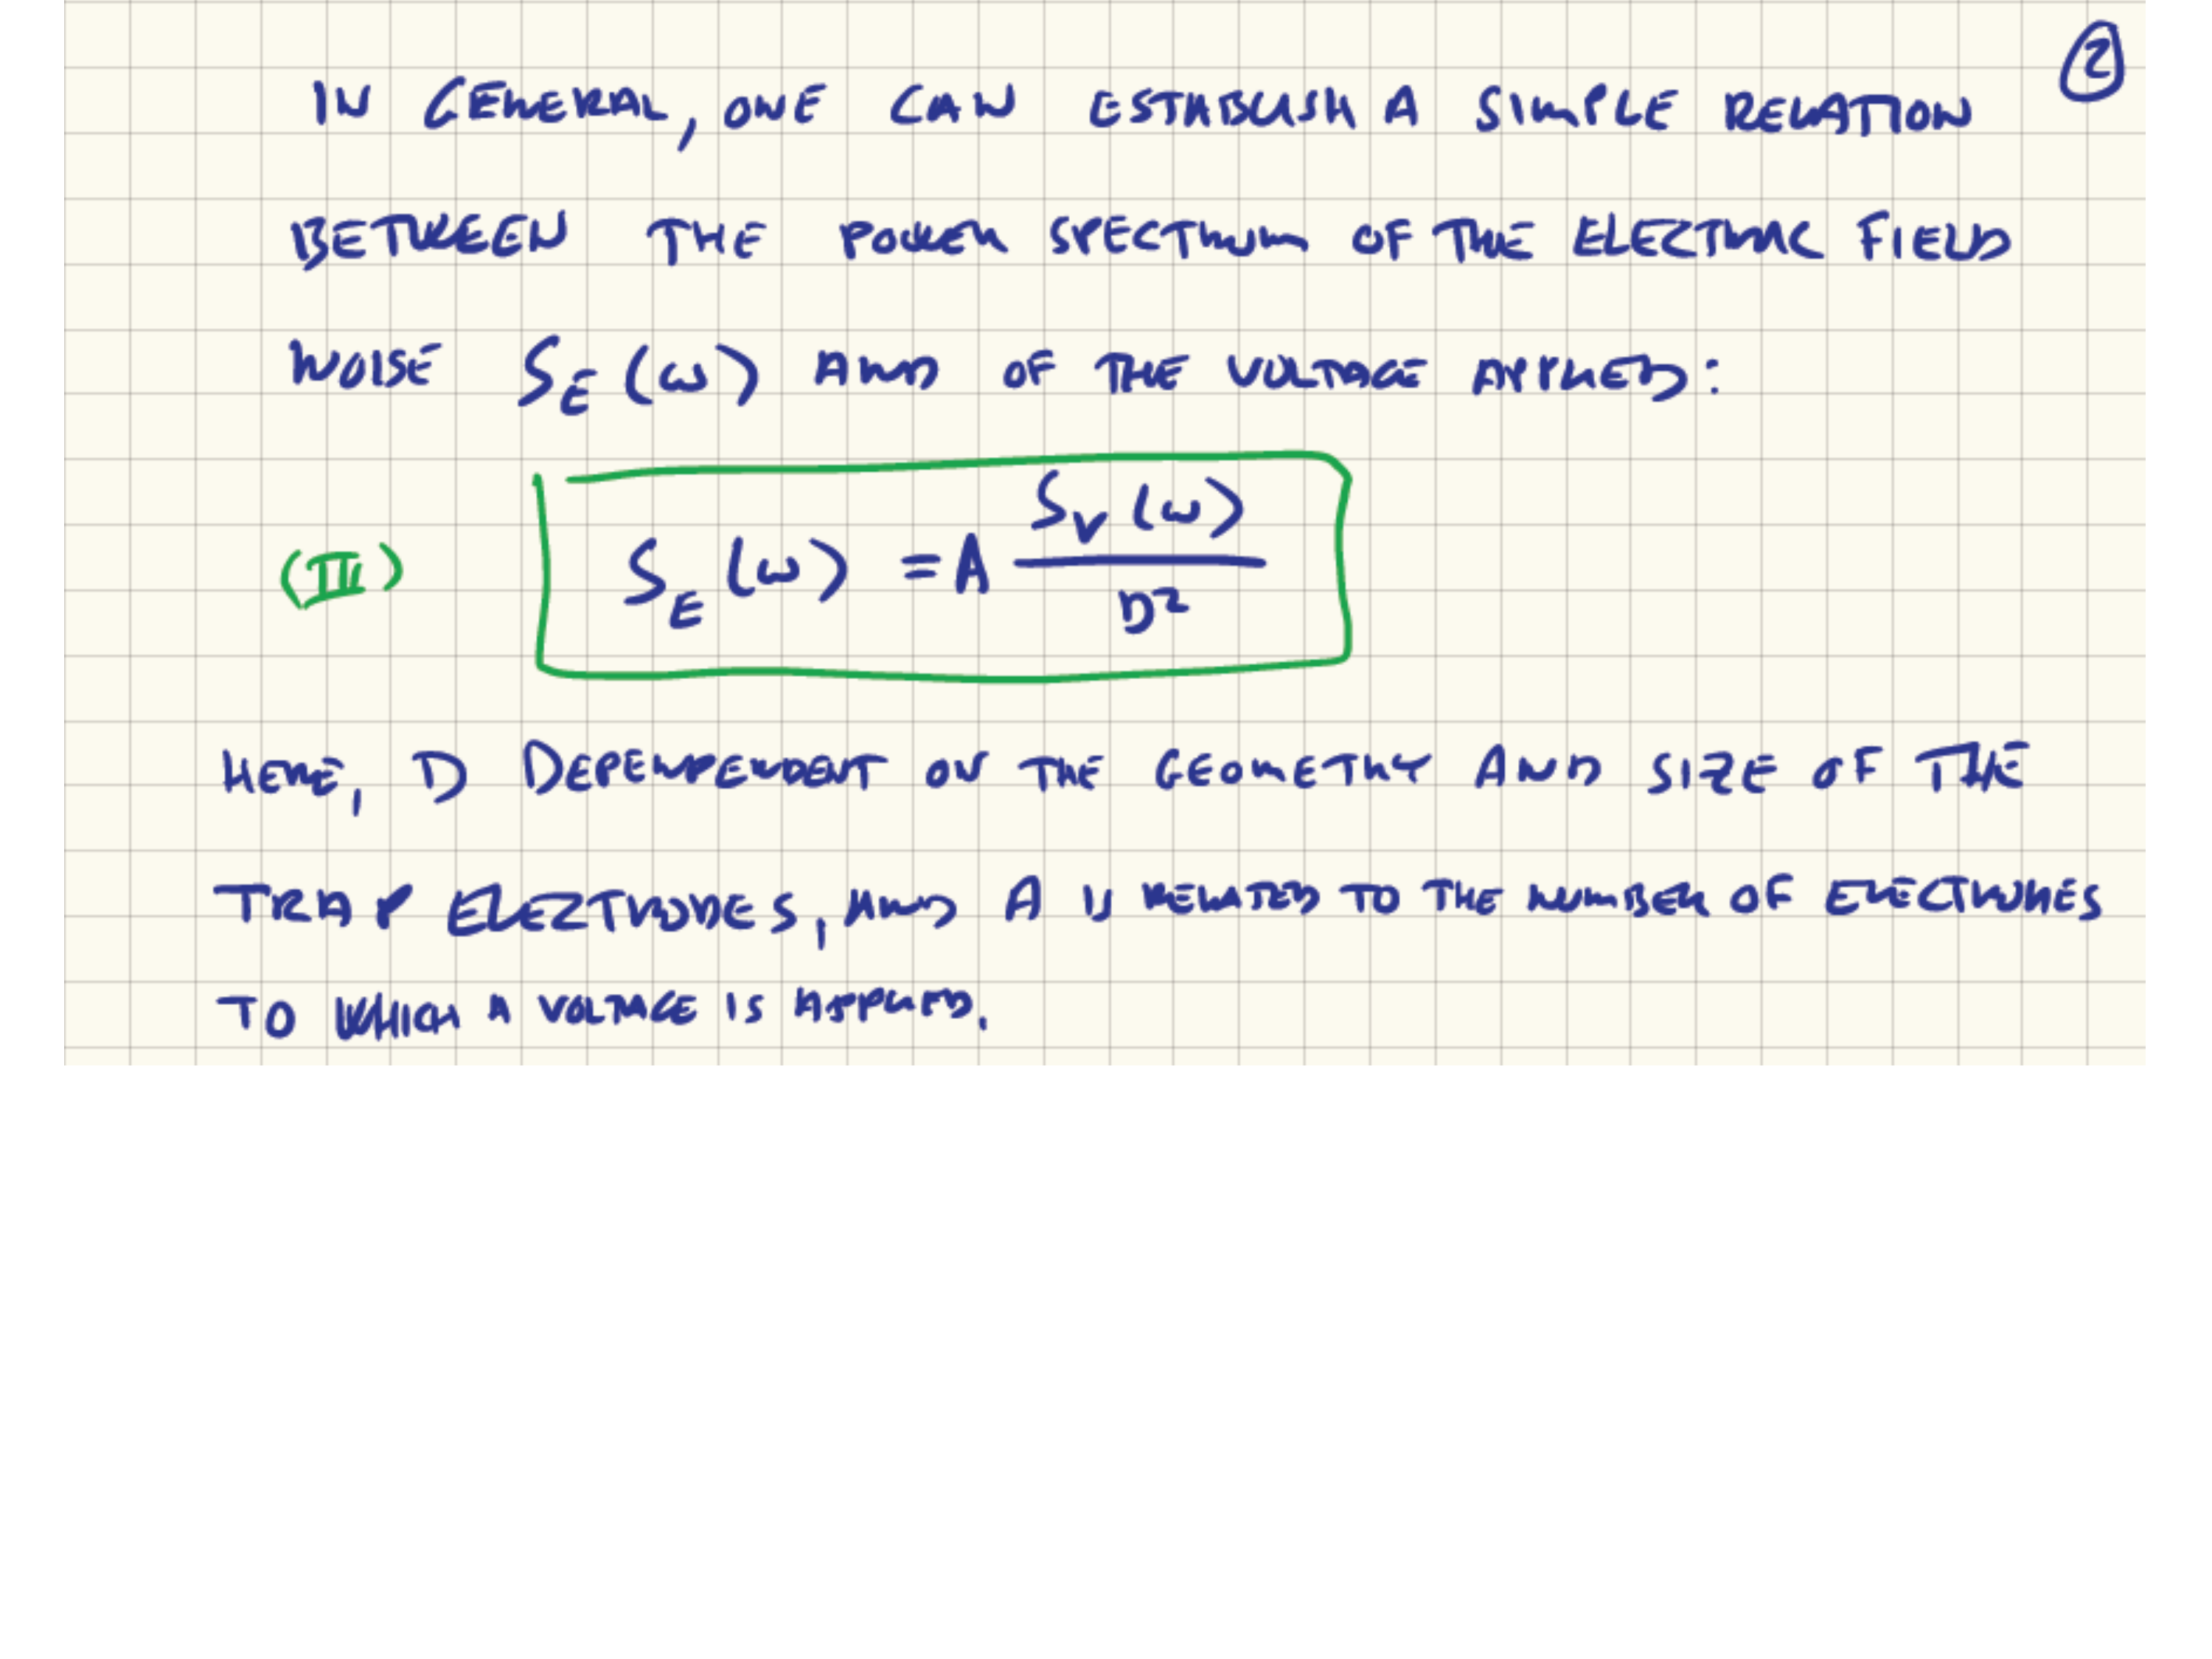 ②
IN GENERAL, ONE CAN ESTABLISH A SIMPLE RELATION
BETWEEN THE POWER SPECTRUM OF THE ELECTRIC FIELD
NOISE S_E(ω) AND OF THE VOLTAGE APPLIED:
(III) S_E(ω) = A S_V(ω) / D²
HERE, D DEPENPENDENT ON THE GEOMETRY AND SIZE OF THE
TRAP ELECTRODES, AND A IS RELATED TO THE NUMBER OF ELECTRODES
TO WHICH A VOLTAGE IS APPLIED.